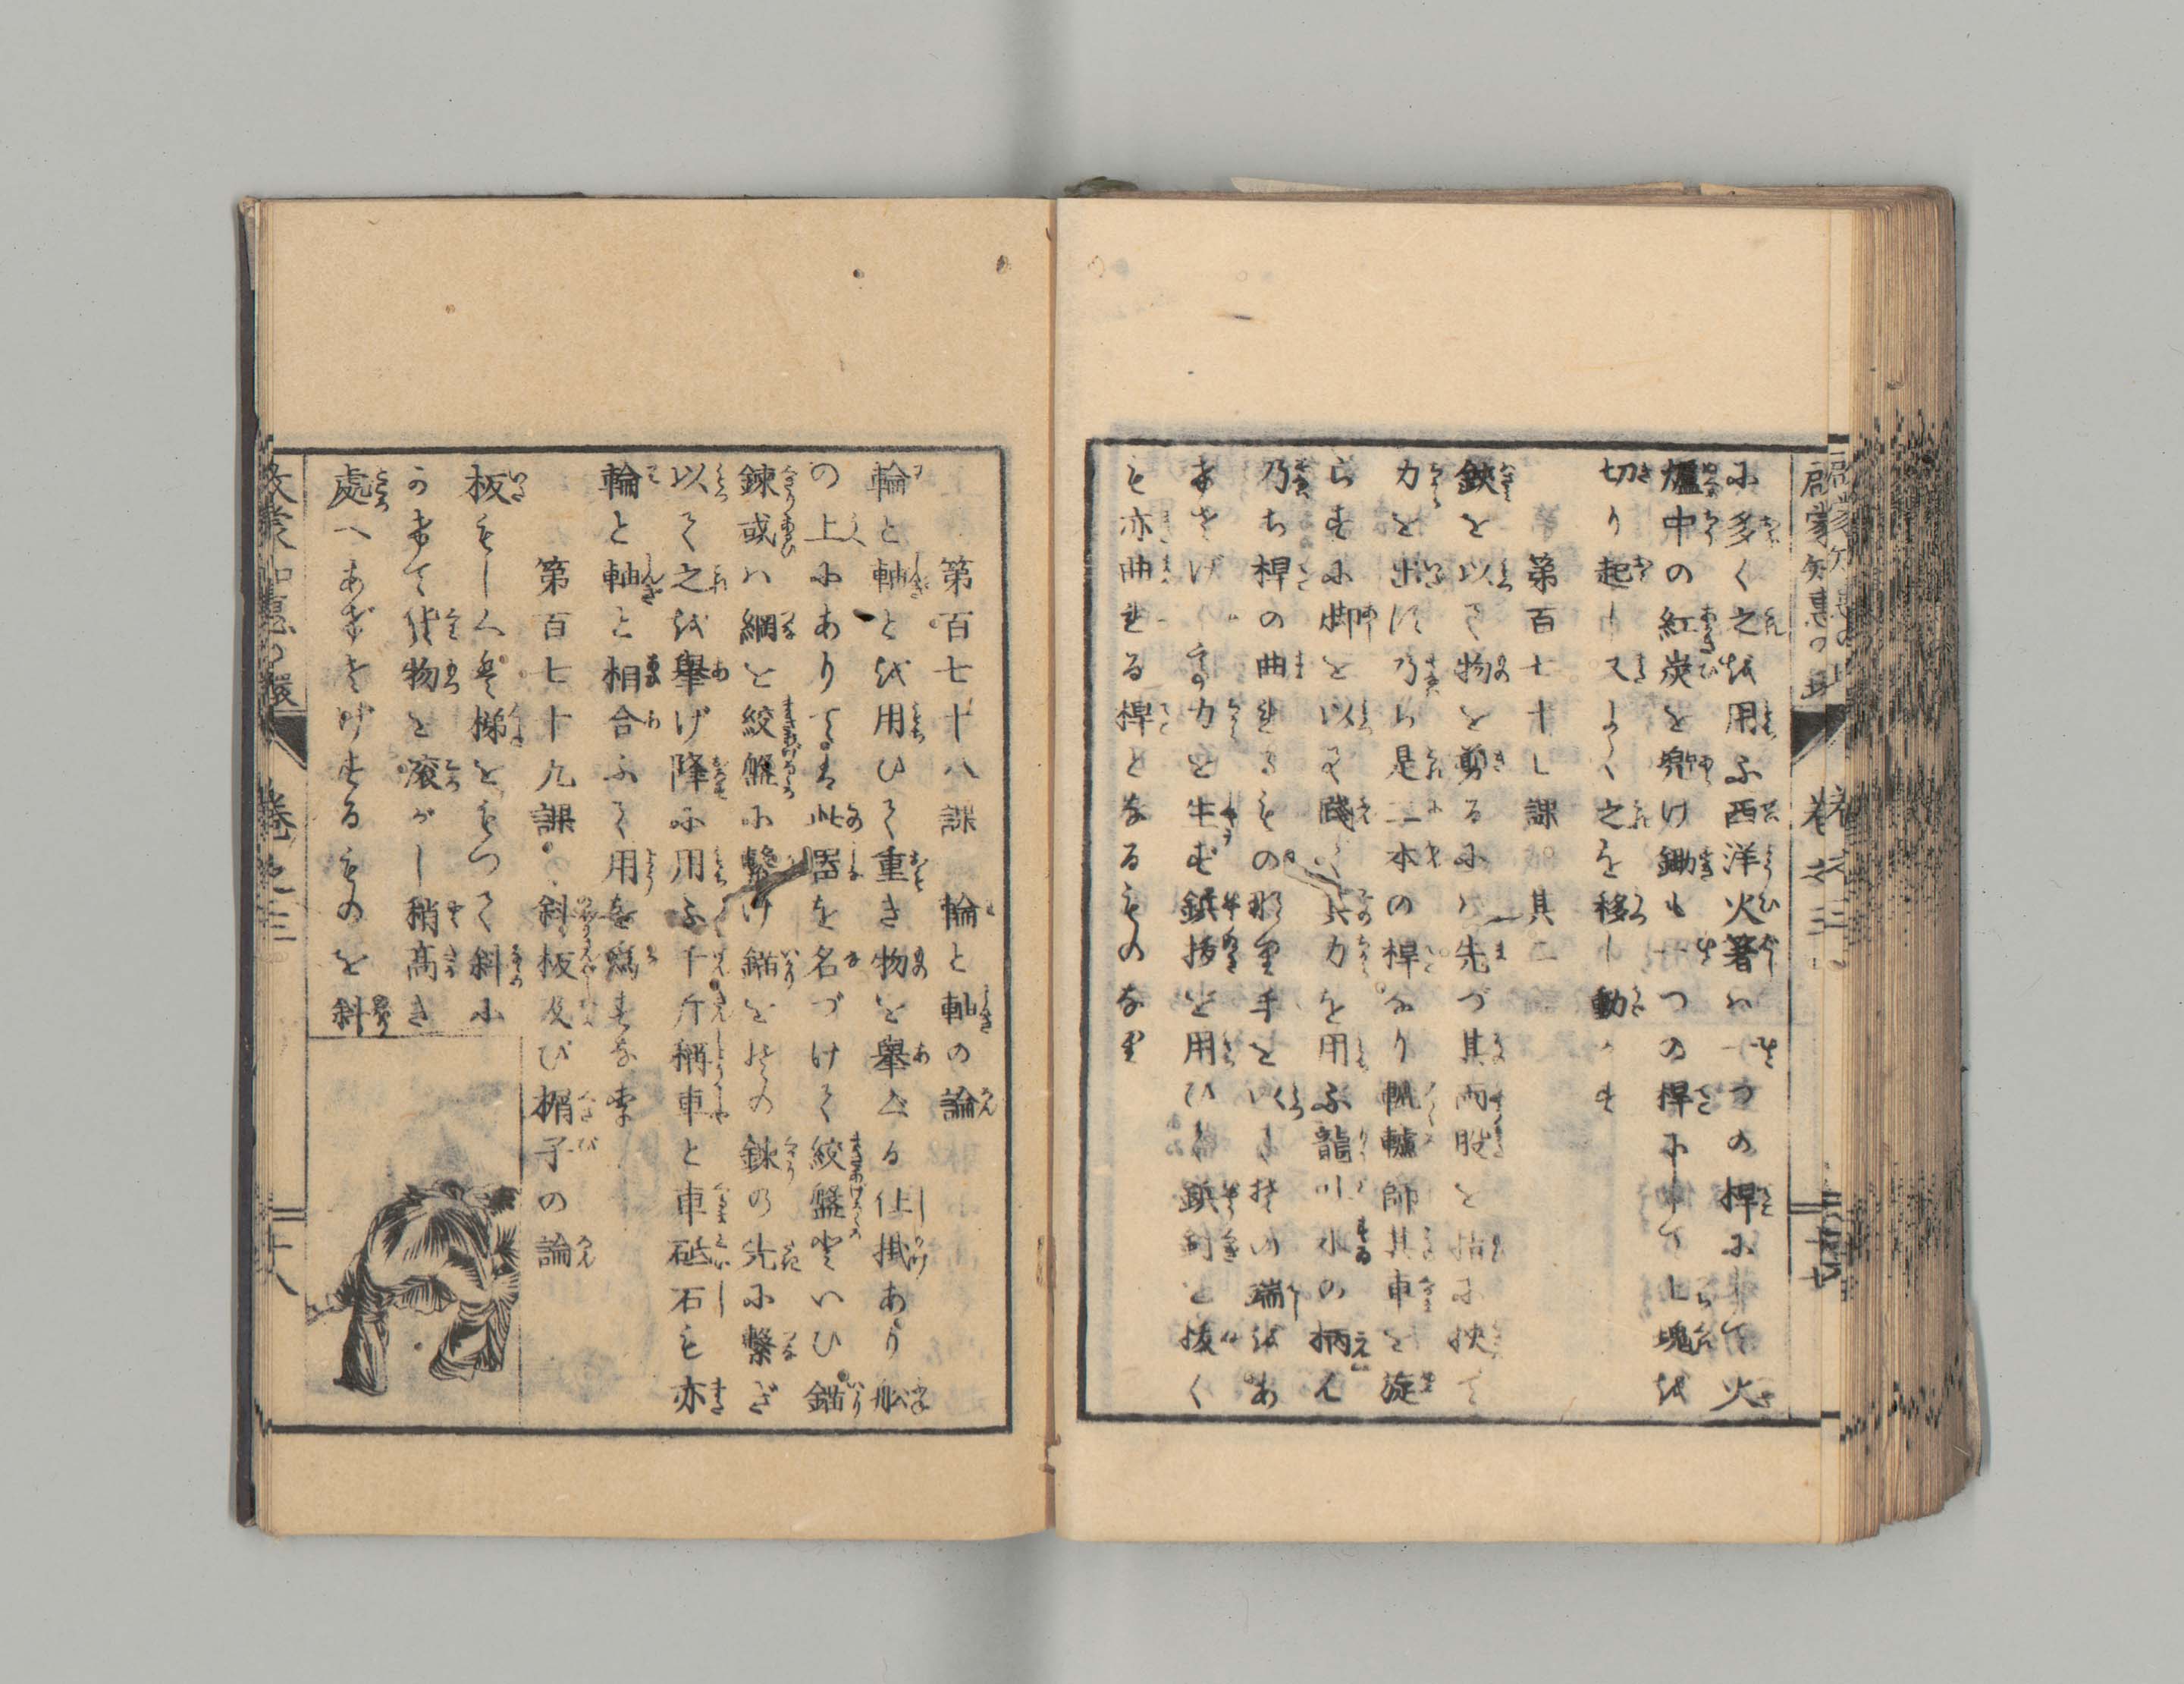 啓蒙知惠の環 卷之三
に多く之を用ふ西洋火箸は一つの桿にして火
爐中の紅炭を男け鋤も一つの桿にして土塊を
切り起し又よく之を移し動かす
第百七十七課 其二
鋏を以て物を剪るには先づ其両股を指に挾て
力を出す乃ち是二本の桿なり轆轤師其車を旋
らすに脚を以て踐て其力を用ふ龍吐水の柄ハ
乃ち桿の曲れるもの那り手を以てその端をあ
げさげして力を生ず鋲抜を用ひて鋲釘を抜く
も亦曲れる桿となるものなり
第百七十八課 輪と軸の論
輪と軸とを用ひて重き物を擧ぐる仕掛あり舩
の上にありては此噐を名づけて絞盤といひ錨
鍊或ハ綱を絞盤に繫け錨をその鍊の先に繋ぎ
以て之を擧げ降に用ふ千斤稱車と車砥石も亦
輪と軸と相合ふて用を爲すなり
第百七十九課 斜板及び楔子の論
板もしくは梯をもつて斜に
かけて貨物を滾がし稍高き
處へあげさげするものを斜
啓蒙知惠の環 卷之三 二十八